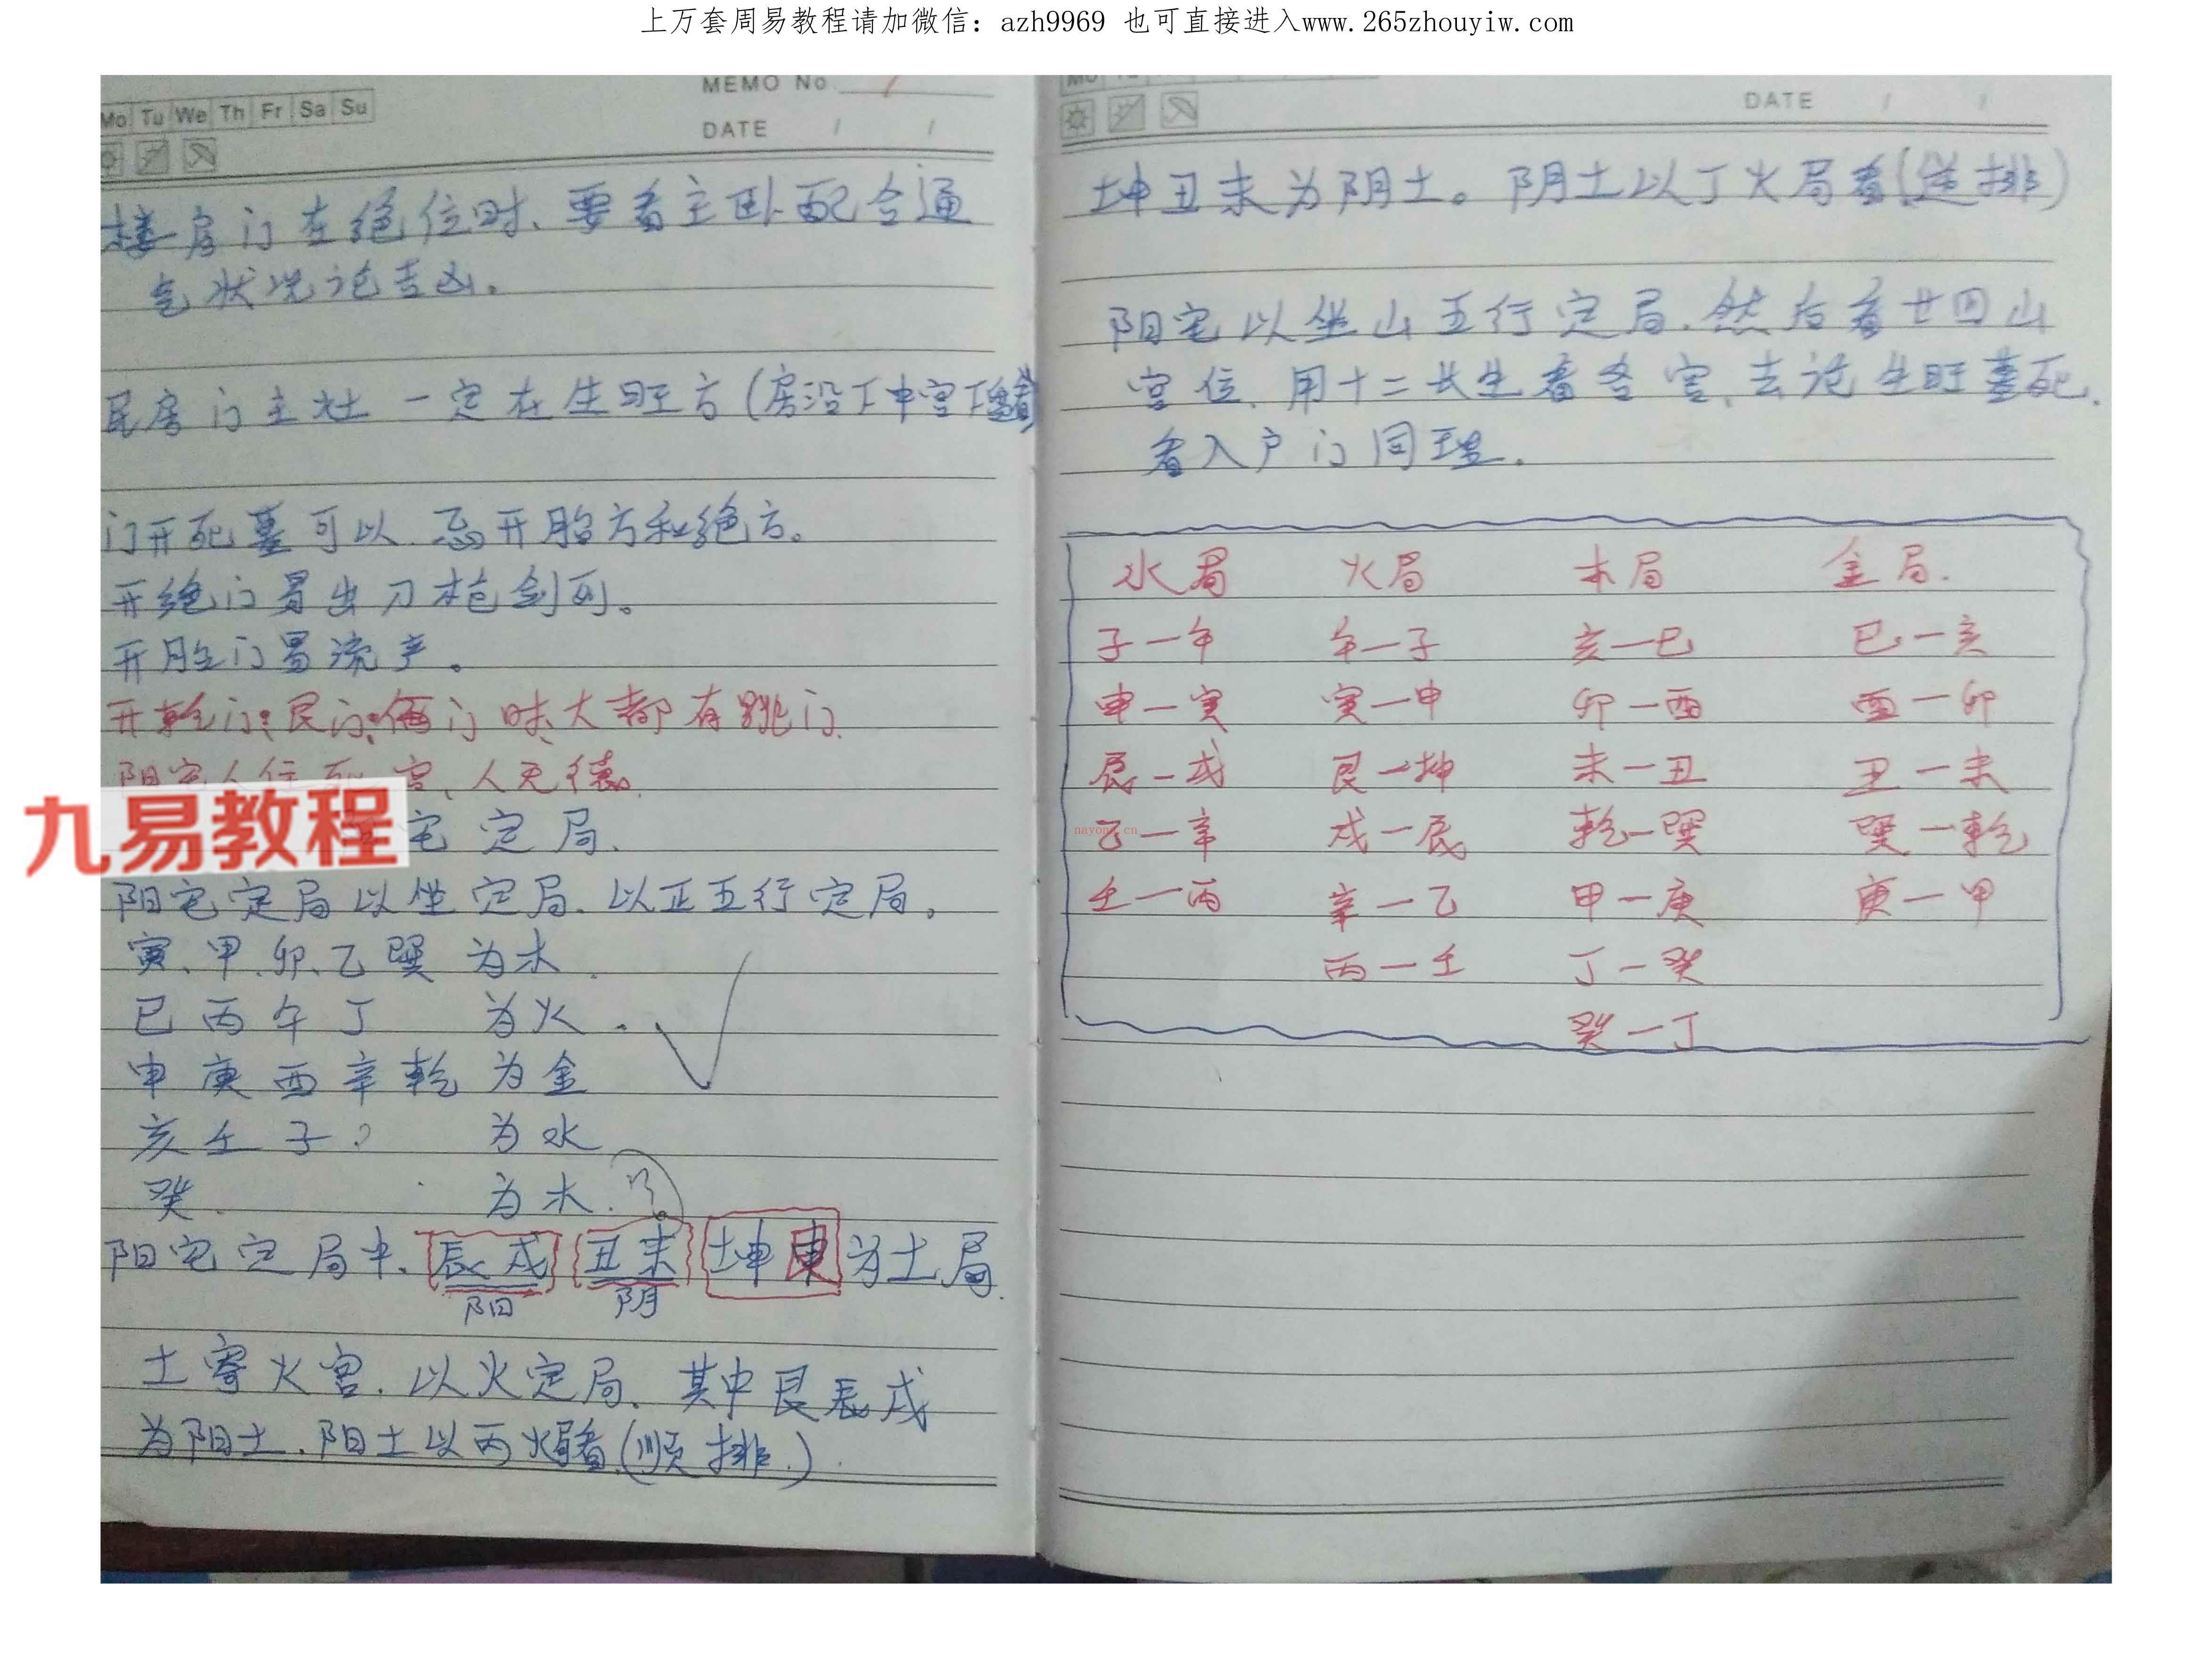 上万套周易教程请加微信：azh9969 也可直接进入www.265zhouyiw.com
MEMO No.
Mo Tu We Th Fr Sa Su
DATE / /
楼房门在绝位时、要看主卧配合通
气状况论吉凶。
民房门主灶一定在生旺方(房没下中宫下
门开死墓可以.忌开胎方和绝方。
开绝门易出刀枪剑刑。
开胎门易流产。
开乾门：艮门：俩门时、大都有跳门.
阳宅人住死宫、人无德.
九易教程
宅定局.
阳宅定局以坐定局.以正五行定局。
寅、甲.卯、乙巽 为木.
巳丙午丁 为火.
申庚酉辛乾 为金
亥壬子? 为水
癸. 为木.?
阳宅定局中.辰戌 丑未 坤 为土局.
阳 阴
土寄火宫.以火定局.其中艮辰戌
为阳土.阳土以丙火局看(顺排.)
DATE / /
坤丑未为阴土。阴土以丁火局看(逆排)
阳宅以坐山五行定局.然后看廿四山
宫位.用十二长生看各宫、去论生旺墓死.
看入户门同理.
水局 火局 木局 金局.
子一午 午一子 亥一巳 巳一亥
申一寅 寅一申 卯一酉 酉一卯
辰一戌 艮一坤 未一丑 丑一未
nayong.cn
乙一辛 戌一辰 乾一巽 巽一乾
壬一丙 辛一乙 甲一庚 庚一甲
丙一壬 丁一癸
癸一丁